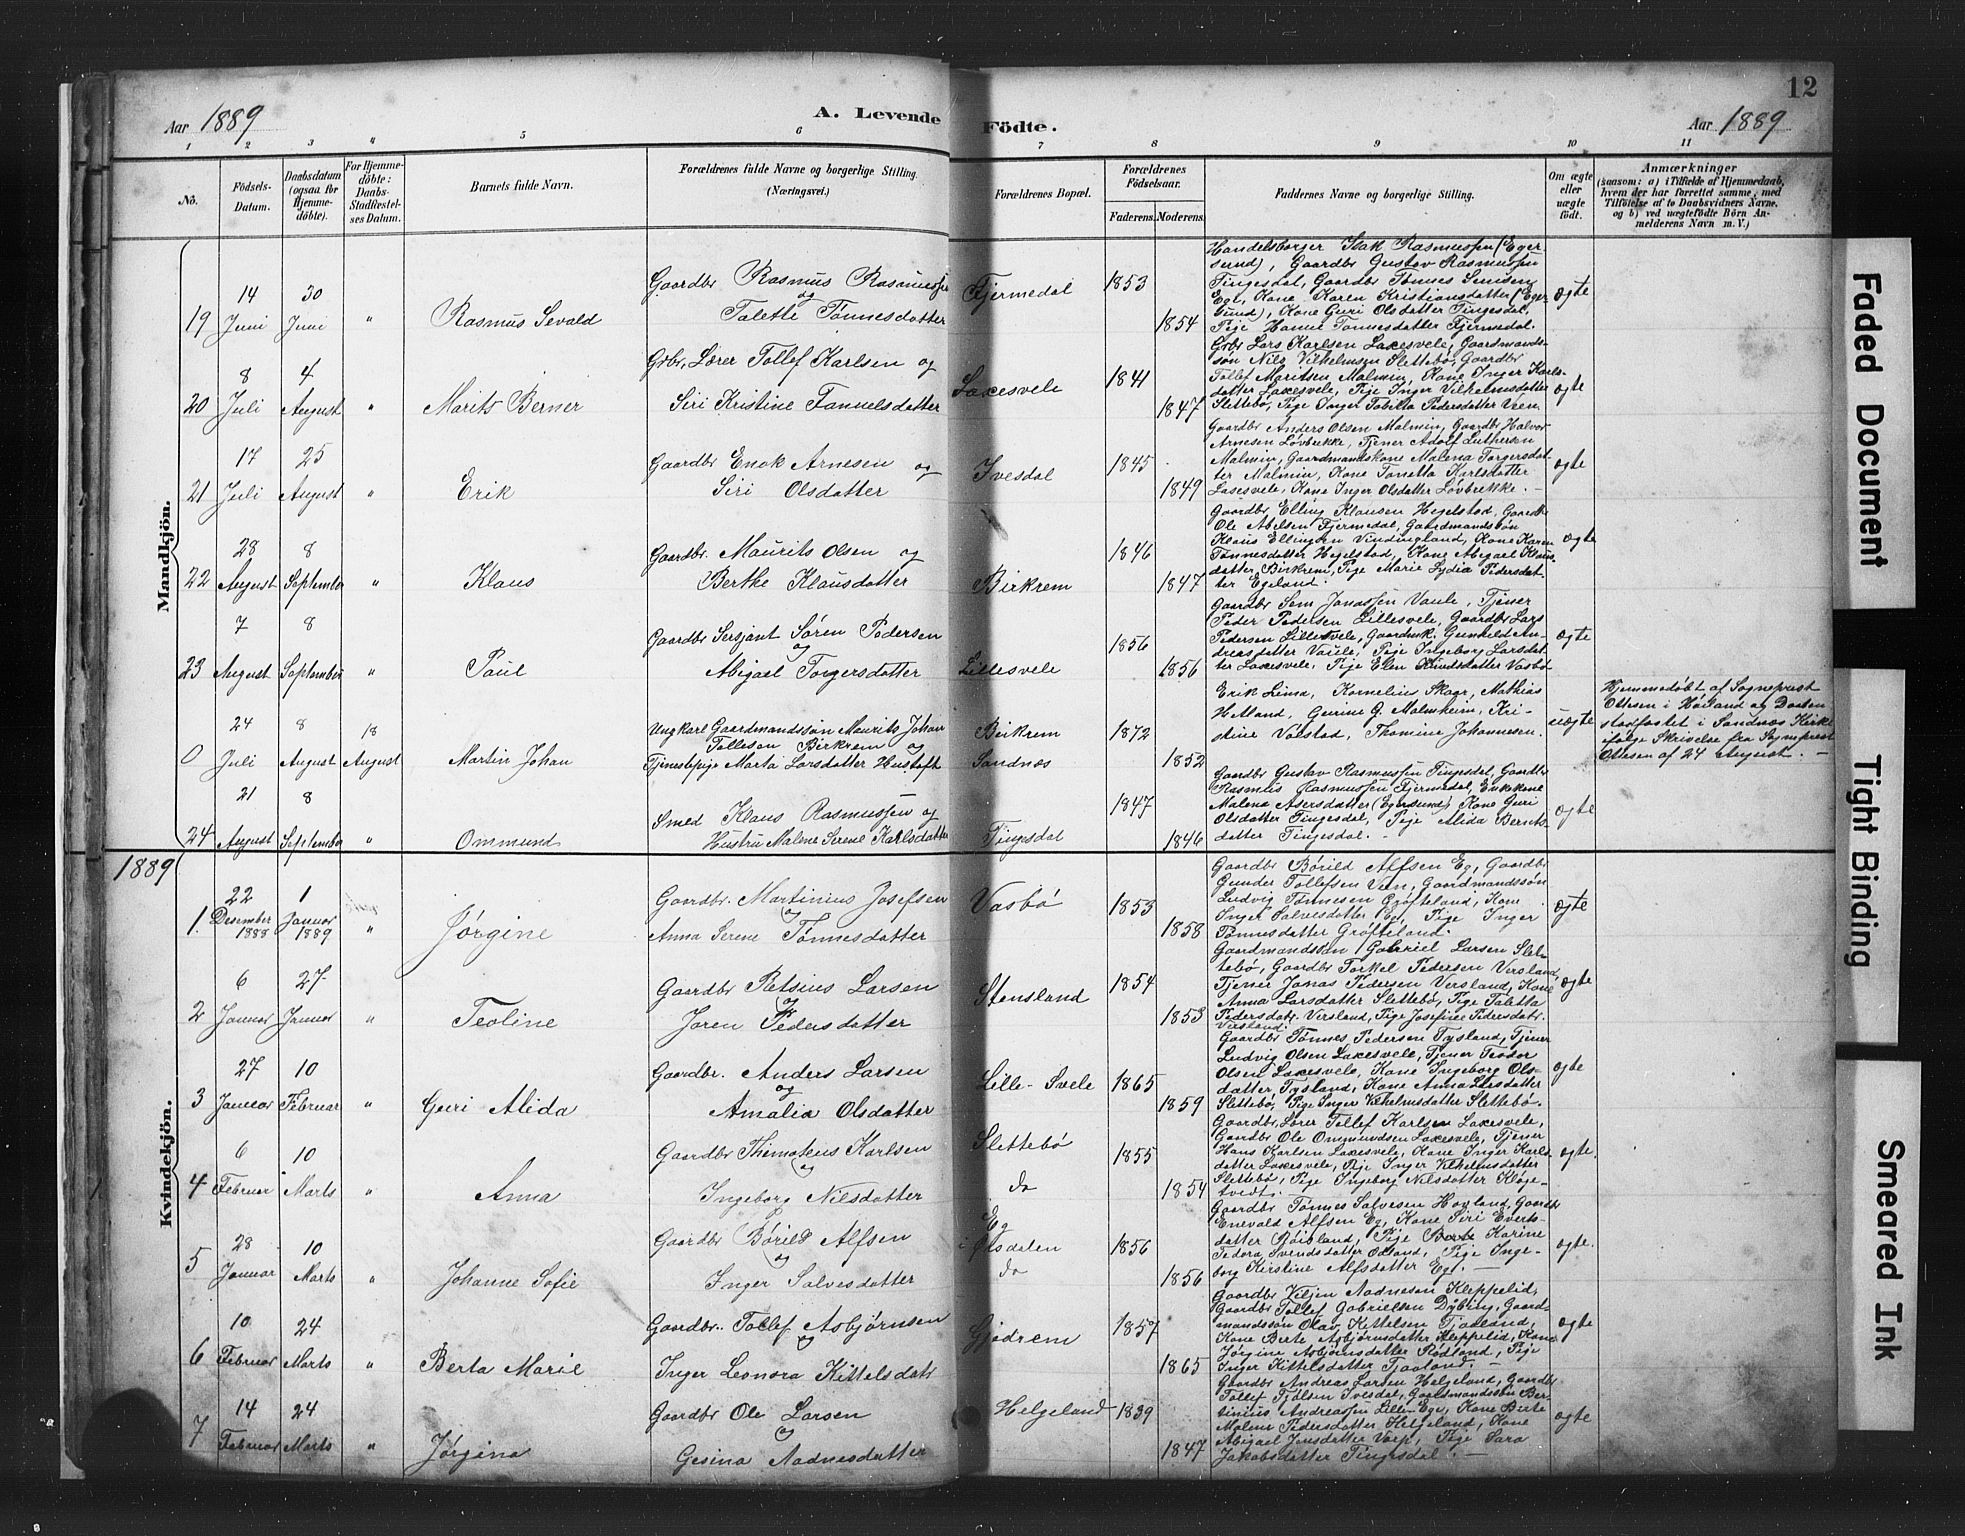 12
Aar 1889
A. Levende Födte.
Aar 1889
1 2 3 " 5 6 7 8 9 10 11
No.
Födsels-
Datum.
Daabsdatum
(ogsaa for
Hjemme-
döbte).
For Hjemme-
döbte:
Daabs-
Stadfæstel-
ses Datum.
Barnets fulde Navn.
Forældrenes fulde Navne og borgerlige Stilling.
(Næringsvei.)
Forældrenes Bopæl.
Forældrenes
Födselsaar.
Faderens.
Moderens.
Faddernes Navne og borgerlige Stilling.
Om ægte
eller
uægte
födt.
Anmærkninger
(saasom: a) i Tilfælde af Hjemmedaab,
hvem der har forrettet samme, med
Tilföielse af to Daabsvidners Navne,
og b) ved uægtefödte Börn An-
melderens Navn m. V.)
Mandkjön.
19
14
Juni
30
Juni
"
Rasmus Sevald
Gaardbr Rasmus Rasmussen
og
Talette Tønnesdatter
Fjermedal
1853
1854
Handelsborger Isak Rasmussen (Eger-
sund), Gaardbr Gustav Rasmussen
Tingesdal, Gaardbr Tønnes
Ege, Kone Karen Kristiansdatter (Eger-
sund), Kone Guri Olsdatter Tingesdal,
Pige Hanne Tønnesdatter Fjermedal.
ægte
20
8
Juli
4
August
"
Marits Berner
Grbr, Lærer Tollef Karlsen og
Siri Kristine Fannelsdatter
Laxesvele
1841
1847
Grbr Lars Karlsen Laxesvele, Gaardmands-
søn Nils Vilhelmsen Slettebø, Gaardbr
Tollef Maritsen Malmin, Kone Inger Karls-
datter Laxesvele, Pige Inger Vilhelmsdatter
Slettebø, Pige Inger Tobitta Pedersdatter Veen.
ægte
21
17
Juli
25
August
"
Erik
Gaardbr Enok Arnesen og
Siri Olsdatter
Ivesdal
1845
1849
Gaardbr Anders Olsen Malmin, Gaardbr Halvor
Arnesen Løvbrekke, Tjener Adolf Luthersen
Malmin, Gaardmandskone Malena Torgersdat-
ter Malmin, Kone Tonetta Karlsdatter
Laxesvele, Kone Inger Olsdatter Løvbrekke.
ægte
22
28
August
8
September
"
Klaus
Gaardbr. Maurits Olsen og
Berthe Klausdatter
Birkrem
1846
1847
Gaardbr Elling Klausen Hegelstad, Gaardbr
Ole Abelsen Fjermedal, Gaardmandssøn
Klaus Ellingsen Vindingland, Kone Karen
Tønnesdatter Hegelstad, Kone Abigael Klaus-
datter, Birkrem, Pige Marie Lydia Pedersdat-
ter Egeland.
ægte
23
7
August
8
September
"
Paul
Gaardbr Sersjant Søren Pedersen
og
Abigael Torgersdatter
Lillesvele
1856
1856
Gaardbr Sem Jonassen Vaule, Tjener
Peder Pedersen Lillesvele, Gaardbr Lars
Pedersen Lillesvele, Gaardmk. Gunhild An-
dreasdatter Vaule, Pige Ingeborg Larsdat-
ter Laxesvele, Pige Elen Knudsdatter Vasbø
ægte
0
24
Juli
8
August
18
August
Martin Johan
Ungkarl Gaardmandssøn Maurits Johan
Tollesen Birkrem og
Tjenestepige Marta Larsdatter Hustoft
Birkrem
Sandnæs
1872
1852
Erik Lima, Kornelius Skagr, Mathias
Hetland, Gurine G. Malmheim, Kri-
stine Varstad, Thomine Johannesen.
uægte
Hjemmedøbt af Sogneprest
Ottesen i Høiland og Daaben
stadfæstet i Sandnæs Kirke
ifølge Skrivelse fra Sogneprest
Ottesen af 24 August.
24
21
August
8
September
"
Ommund
Smed Klaus Rasmussen og
Hustru Malene Serene Karlsdatter
Tingesdal
1847
1846
Gaardbr Gustav Rasmussen Tingesdal, Gaardbr
Rasmus Rasmussen Fjermedal, Enkekone
Malena Asersdatter (Egersund), Kone Guri
Olsdatter Tingesdal, Pige Alida Bernts-
datter Tingesdal.
ægte
1889
Kvindekjön.
1.
22
Desember
1888
1
Januar
1889
"
Jørgine
Gaardbr. Martinius Josefsen
og
Anna Serene Tønnesdatter
Vasbø
1853
1858
Gaardbr Børild Alfsen Eg, Gaardbr
Gunder Tollefsen Veen, Gaardmandssøn
Ludvig Tønnesen Grøfteland, Kone
Inger Salvesdatter Eg, Pige Inger
Tønnesdatter Grøfteland.
ægte
2
6
Januar
27
Januar
"
Teoline
Gaardbr Betsius Larsen
og
Joren Pedersdatter
Stensland
1854
1853
Gaardmandssøn Gabriel Larsen Slet-
tebø, Gaardbr Torkel Pedersen Versland,
Tjener Jonas Pedersen Versland, Kone
Anna Larsdatter Slettebø, Pige Taletta
Pedersdatr. Versland, Pige Josefine Pedersdatr.
Versland.
ægte
3
27
Januar
10
Februar
"
Guri Alida
Gaardbr. Anders Larsen
og
Amalia Olsdatter
Lille-Svele
1865
1859
Gaardbr Tønnes Pedersen Tysland, Tjener
Ludvig Olsen Laxesvele, Tjener Teodor
Olsen Laxesvele, Kone Ingeborg Ols-
datter Tysland, Kone Anna Larsdatter
Slettebø, Pige Inger Vilhelmsdatter Slettebø.
ægte
4
6
Februar
10
Marts
"
Anna
Gaardbr Thimoteus Karlsen
og
Ingeborg Nilsdatter
Slettebø
do
1855
1854
Gaardbr, Lærer Tollef Karlsen Laxesvele,
Gaardbr Ole Ommundsen Laxesvele, Tjener
Hans Karlsen Laxesvele, Kone Inger Karls-
datter Laxesvele, Pige Inger Vilhelmsdatter
Slettebø, Pige Ingeborg Nilsdatter Kløge-
tvedt.
ægte.
5
28
Januar
10
Marts
"
Johanne Sofie
Gaardbr Børild Alfsen
og
Inger Salvesdatter
Eg
i Ørsdalen
do
1856
1856
Gaardbr Tønnes Salvesen Hovland, Gaardbr
Enevald Alfsen Eg, Kone Siri Everts-
datter Røisland, Pige Berte Karine
Tedora Svendsdatter Odland, Pige Inge-
borg Kirstine Alfsdatter Eg.
ægte.
6
10
Februar
24
Marts
"
Berta Marie
Gaardbr. Tollef Asbjørnsen
og
Inger Leonora Kittelsdatr
Gjedrem
1857
1865
Gaardbr Viljen Aadnesøn Kleppelid,
Gaardbr Tollef Gabrielsen Dybing, Gaard-
mandssøn Olav Kittelsen Tjaaland,
Kone Berte Asbjørnsdatter Kleppelid, Kone
Jørgine Asbjørnsdatter Rødland, Pige
Inger Kittelsdatter Tjaaland.
ægte
7
14
Februar
24
Marts
"
Jørgina
Gaardbr Ole Larsen
og
Gesina Aadnesdatter
Helgeland
1839
1847
Gaardbr Andreas Larsen Helgeland, Gaardbr
Tollef Tjølsen Ivesdal, Gaardmandssøn Ber-
tinius Andreassen Lille Ege, Kone Berte
Malene Pedersdatter Helgeland, Kone
Abigael Jensdatter Varp, Pige Sara
Jakobsdatter Tingesdal.
ægte
Faded Document
Tight Binding
Smeared Ink